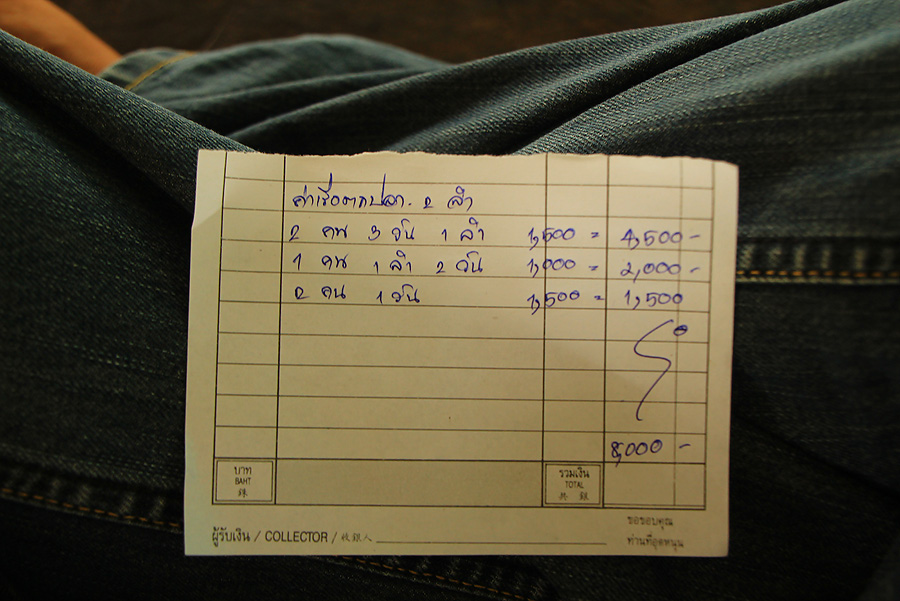 ค่าเรือตกปลา. 2 ลำ
2 คน 3 วัน 1 ลำ 1,500 = 4,500 -
1 คน 1 ลำ 2 วัน 1,000 = 2,000 -
2 คน 1 วัน 1,500 = 1,500
8,000 -
บาท
BAHT
รวมเงิน
TOTAL
共 銀
ผู้รับเงิน / COLLECTOR / 收銀人
ขอขอบคุณ
ท่านที่อุดหนุน